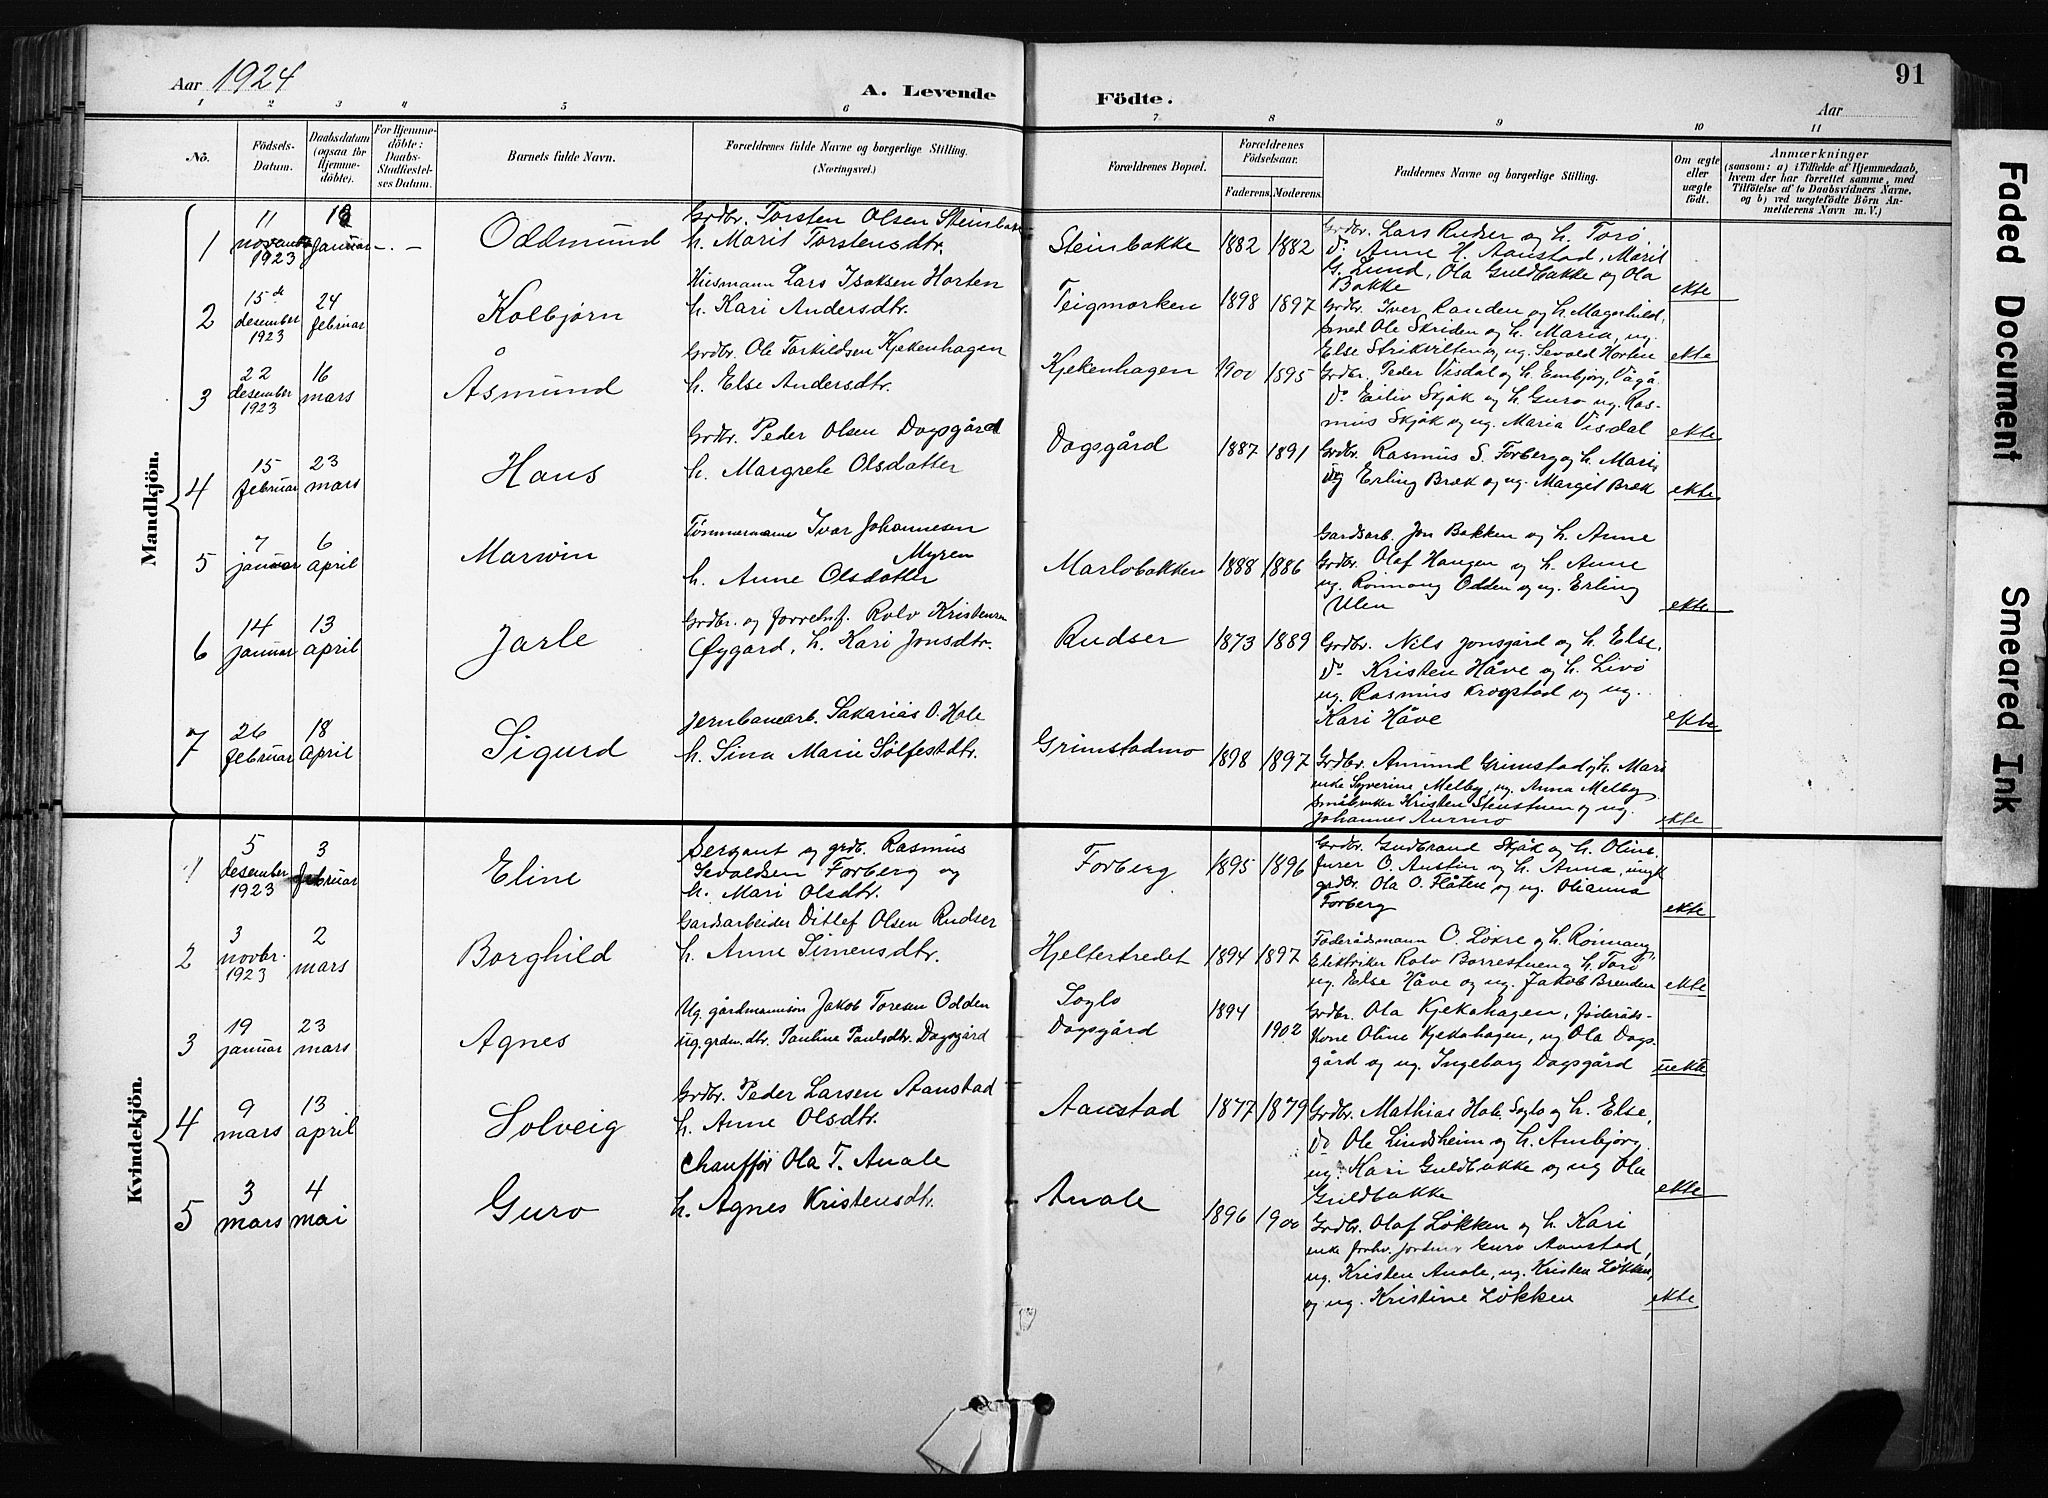 Aar 1924
A. Levende
Födte.
Aar
91
1 2 3 4 5 6 7 8 9 10 11
Nô.
Födsels-Datum.
Daabsdatum (ogsaa for Hjemmedöbte).
For Hjemmedöbte: Daabs-Stadfæstelses Datum.
Barnets fulde Navn.
Forældrenes fulde Navne og borgerlige Stilling. (Næringsvei.)
Forældrenes Bopæl.
Forældrenes Födselsaar.
Faderens. Moderens.
Faddernes Navne og borgerlige Stilling.
Om ægte eller uægte födt.
Anmærkninger
(saasom: a) i Tilfælde af Hjemmedaab, hvem der har forrettet samme, med Tilföielse af to Daabsvidners Navne, og b) ved uægtefödte Börn Anmelderens Navn m. V.)
Mandkjön.
1
11 november 1923
januar
Oddmund
Grdbr. Torsten Olsen Steinbakke
h. Marit Torstensdtr.
Steinbakke
1882 1882
Grdbr. Lars Rudser og h. Torø
do Anne H. Aanstad, Marit
G. Lund, Ola Guldbakke og Ola
Bakke
ekte
2
15de desember 1923
24 februar
Kolbjørn
Husmann Lars Isaksen Horten
h. Kari Andersdtr.
Teigmorken
1898 1897
Grdbr. Iver Randen og h. Magnhild,
smed Ole Skriden og h. Maria, ug.
Else Strikvilten og ug. Sevald Horten
ekte
3
22 desember 1923
16 mars
Åsmund
Grdbr. Ole Torkildsen Kjekenhagen
h. Else Andersdtr.
Kjekenhagen
1900 1895
Grdbr. Peder Visdal og h. Embjørg, Vågå
do Eiliv Skjåk og h. Guro ug. Ras-
mus Skjåk og ug. Maria Visdal
ekte
4
15 februar
23 mars
Hans
Grdbr. Peder Olsen Dagsgård
h. Margrete Olsdatter
Dagsgård
1887 1891
Grdbr. Rasmus S. Forberg og h. Mari,
ug Erling Bræk og ug. Margit Bræk
ekte
5
7 januar
6 april
Marwin
Tømmermann Ivar Johannesen
Myren
h. Anne Olsdatter
Marlobakken
1888 1886
Gardsarb. Jon Bakken og h. Anne
Grdbr. Olaf Haugen og h. Anne
ug. Rønnaug Odden og ug. Erling
Ulen
ekte
6
14 januar
13 april
Jarle
Grdbr. og forretnf. Rolv Kristensen
Øygard, h. Kari Jonsdtr.
Rudser
1873 1889
Grdbr. Nils Jonsgård og h. Else,
do Kristen Håve og h. Livø
ug. Rasmus Krogstad og ug.
Kari Håve
ekte
7
26 februar
18 april
Sigurd
Jernbanearb. Sakarias O. Hole
h. Sina Marie Sølfestdtr.
Grimstadmo
1898 1897
Grdbr. Amund Grimstad, h. Mari
enke Syverine Melby, ug. Anna Melby
småbruker Kristen Stenstuen og ug.
Johannes Aurmo
ekte
Kvindekjön.
1
5 desember 1923
3 februar
Eline
Sergant og grdb. Rasmus
Sevaldsen Forberg og
h. Mari Olsdtr.
Forberg
1895 1896
Grdbr. Gudbrand Skjåk og h. Oline,
furer O. Austin og h. Anna, ungk
grdbr. Ola O. Flåten og ug. Olianna
Forberg
ekte
2
3 novbr. 1923
2 mars
Borghild
Gardsarbeider Ditlef Olsen Rudser
h. Anne Simensdtr.
Hjeltertredet
1894 1897
Føderådsmann O. Løkre og h. Rønnaug,
Elektriker Rolv Borrestuen og h. Torø
ug. Else Håve og ug. Jakob Brenden
ekte
3
19 januar
23 mars
Agnes
Ug. gårdmannsøn Jakob Toresen Odden
ug. grdm. dtr. Pauline Paulsdtr. Dagsgård
Soglo
Dagsgård
1894
1902
Grdbr. Ola Kjekahagen, føderåds-
kone Oline Kjekahagen, ug Ola Dags-
gård og ug. Ingeborg Dagsgård
uekte
4
9 mars
13 april
Solveig
Grdbr. Peder Larsen Aanstad
h. Anne Olsdtr.
Aanstad
1877 1879
Grdbr. Mathias Hole Soglo og h. Else,
do Ole Lindsheim og h. Ambjørg
ug. Kari Guldbakke og ug Ola
Guldbakke
ekte
5
3 mars
4 mai
Guro
Chauffør Ola T. Anale
h. Agnes Kristensdtr.
Anale
1896 1900
Grdbr. Olaf Løkken og h. Kari
enke forhv. jordmor Guro Aanstad,
ug. Kristen Anale, ug. Kristen Løkken,
og ug. Kristine Løkken
ekte
Faded Document
Smeared Ink